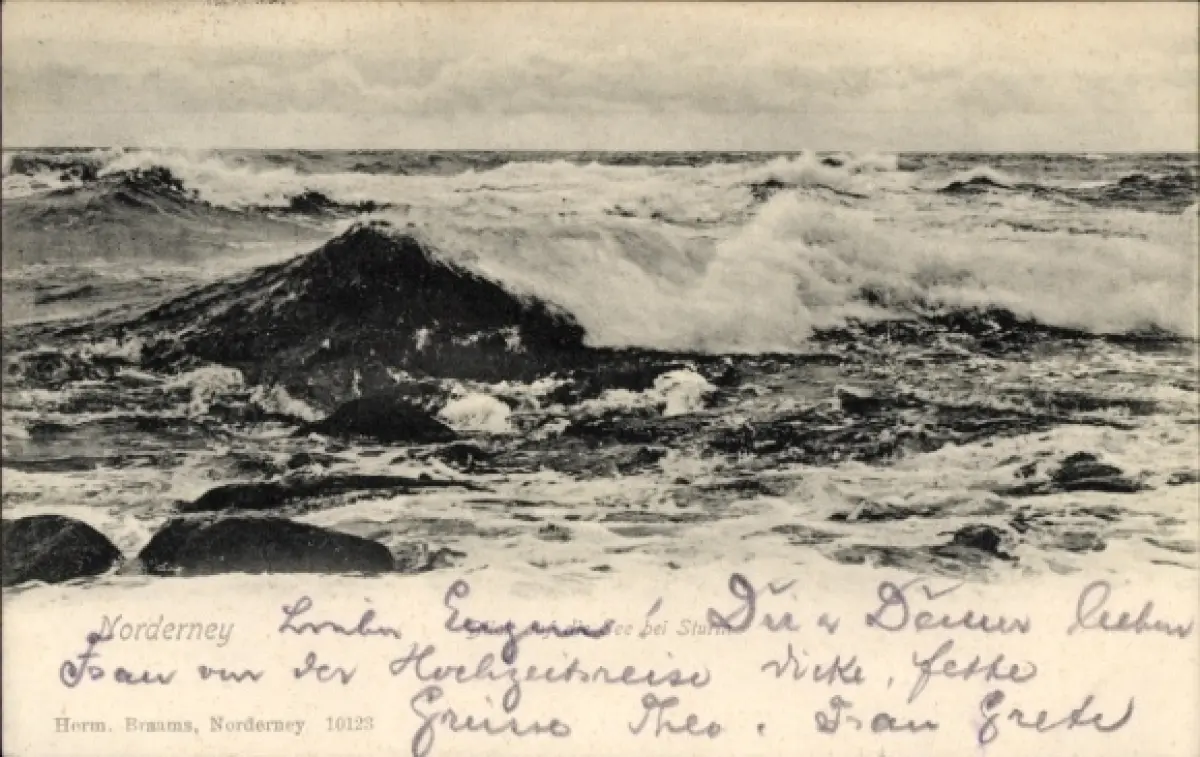 Norderney
auf die See bei Sturm
Lieber Eugen! Dir u Deiner lieben
Frau von der Hochzeitsreise dicke, fette
Grüsse Theo. Frau Grete
Herm. Braams, Norderney 10123